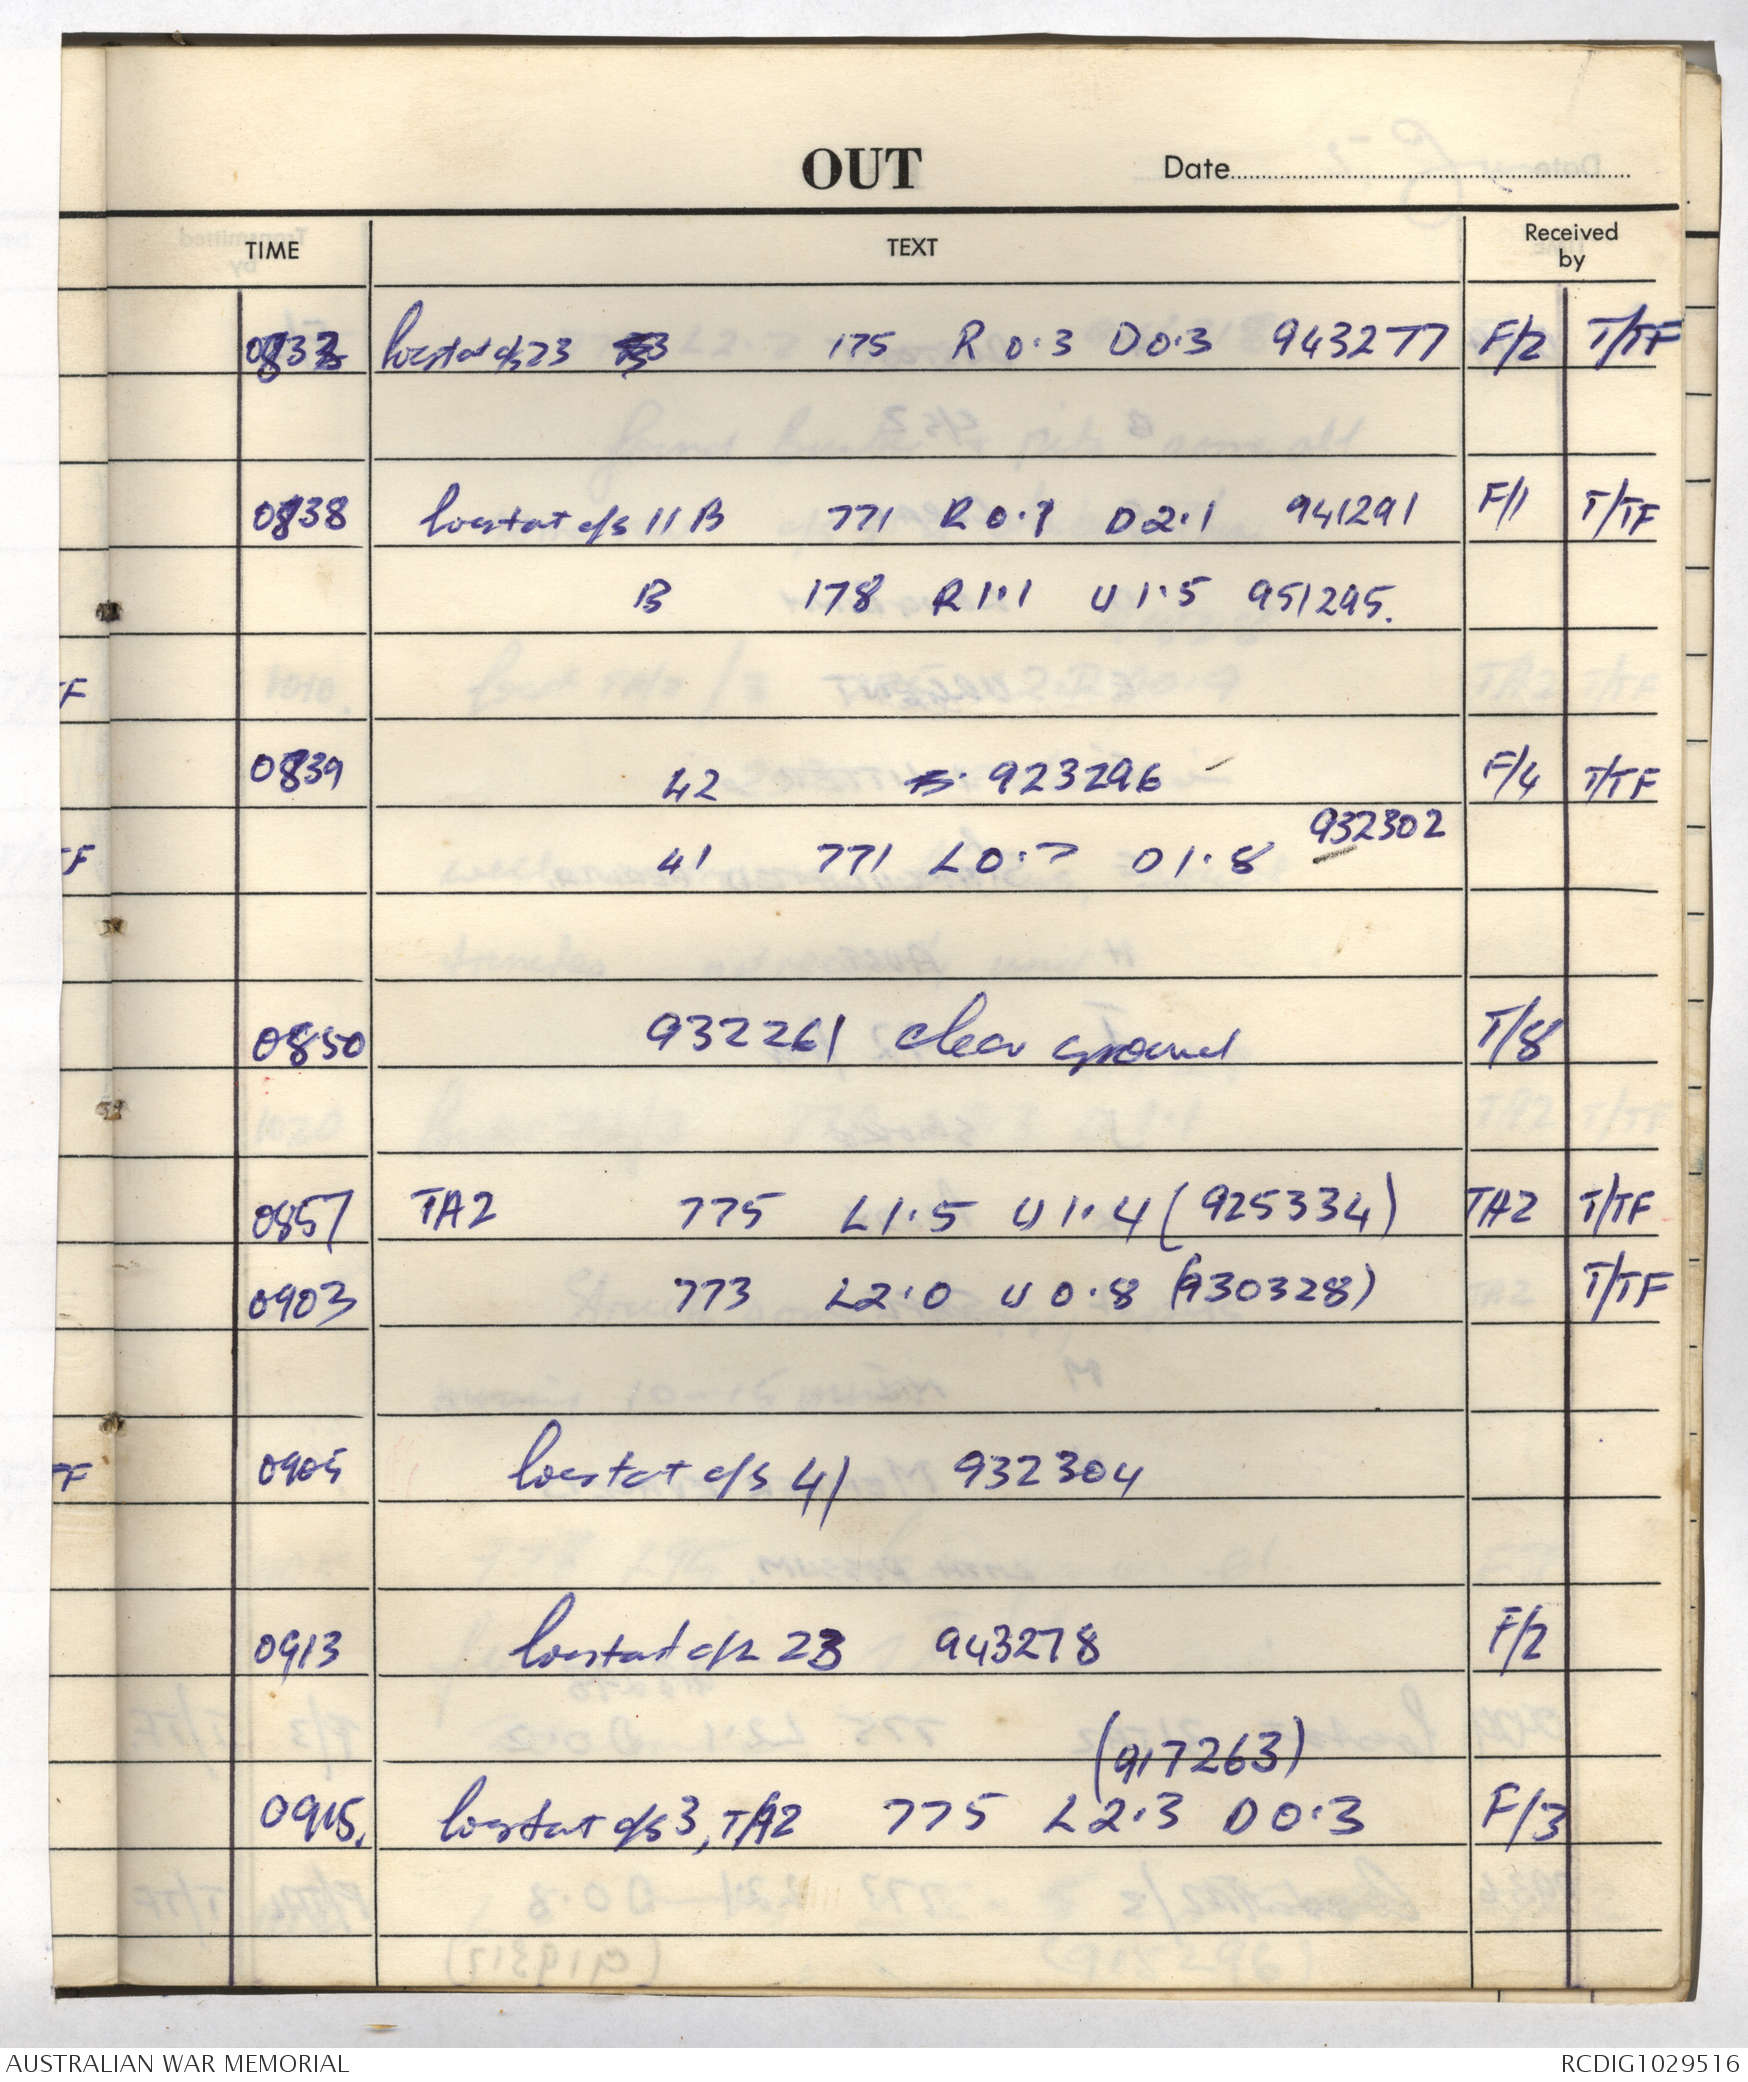 OUT Date
TIME TEXT Received by
0832 locstat c/s 23 175 R 0.3 D 0.3 943277 F/2 T/TF
0838 locstat c/s 11 B 771 R 0.7 D 2.1 941291 F/1 T/TF
B 178 R 1.1 U 1.5 951295.
0839 42 923296 F/4 T/TF
932302
41 771 L 0.7 D 1.8
0850 932261 clear ground T/8
0857 TA2 775 L 1.5 U 1.4 (925334) TA2 T/TF
0903 773 L 2.0 U 0.8 (930328) T/TF
0905 locstat c/s 41 932304
0913 locstat c/s 23 943278 F/2
(917263)
0915. locstat c/s 3, T/A2 775 L 2.3 D 0.3 F/3
AUSTRALIAN WAR MEMORIAL RCDIG1029516